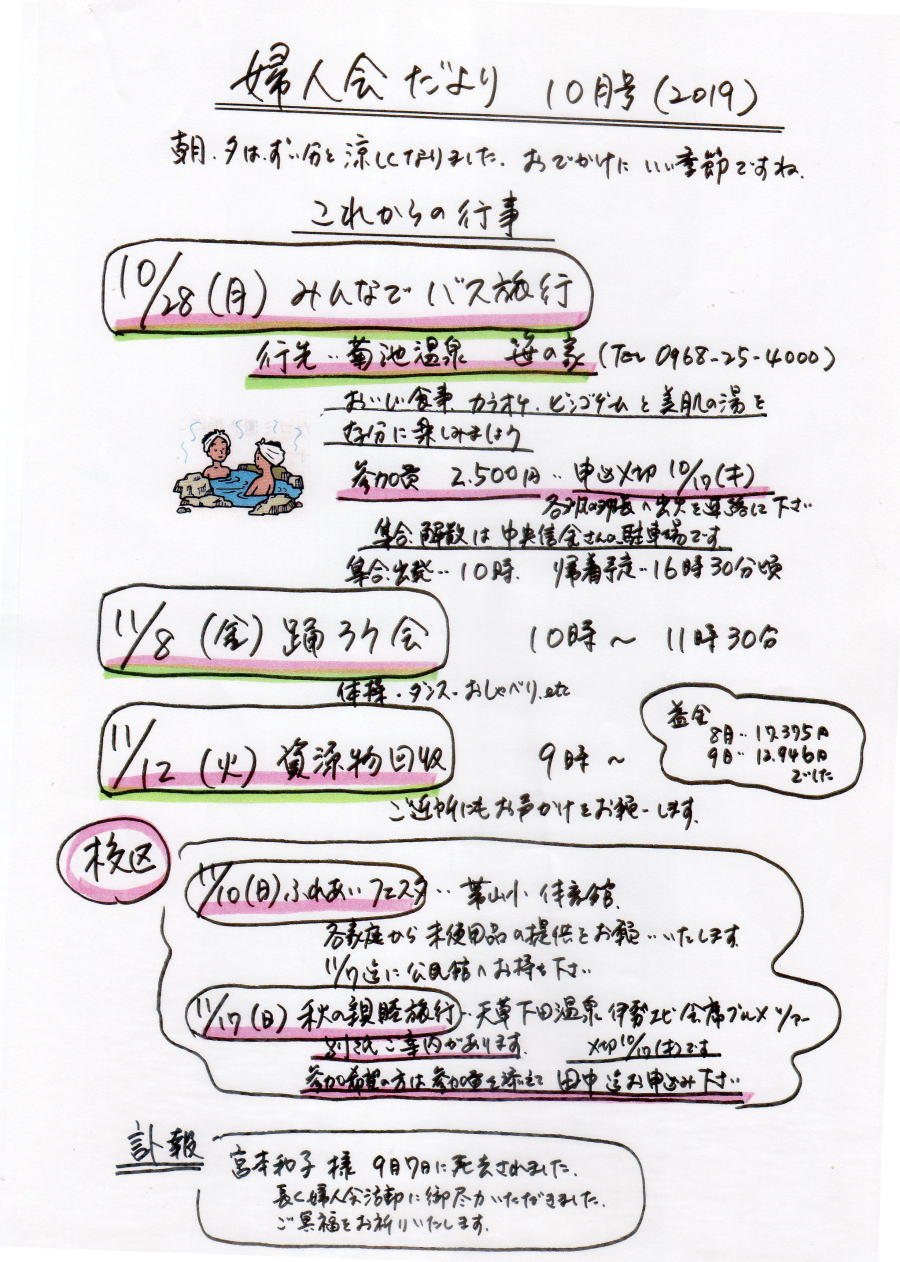 婦人会だより 10月号(2019)
朝、夕はずい分と涼しくなりました。おでかけにいい季節ですね。
これからの行事
10/28(月) みんなでバス旅行
行先‥菊池温泉 笹の家(TEL 0968-25-4000)
おいしい食事、カラオケ、ビンゴゲームと美肌の湯を
存分に楽しみましょう
参加費 2.500円‥申込〆切 10/17(木)
各班の班長へ出欠を連絡して下さい
集合、解散は中央信金さんの駐車場です
集合、出発‥10時、 帰着予定‥16時30分頃
11/8(金) 踊ろう会 10時~11時30分
体操・ダンス・おしゃべり、etc
11/12(火) 資源物回収 9時~
益金
8月‥17.375円
9月‥12.946円
でした
ご近所にもお声かけをお願いします。
校区
11/10(日)ふれあいフェスタ‥帯山小 体育館
各家庭から未使用品の提供をお願いいたします
11/7迄に公民館へお持ち下さい
11/17(日) 秋の親睦旅行‥天草下田温泉 伊勢エビ会席グルメツアー
別紙ご案内があります。 〆切10/17(木)です
参加希望の方は参加費を添えて 田中迄お申込み下さい
訃報
宮本和子様 9月7日に死去されました。
長く婦人会活動に御尽力いただきました。
ご冥福をお祈りいたします。